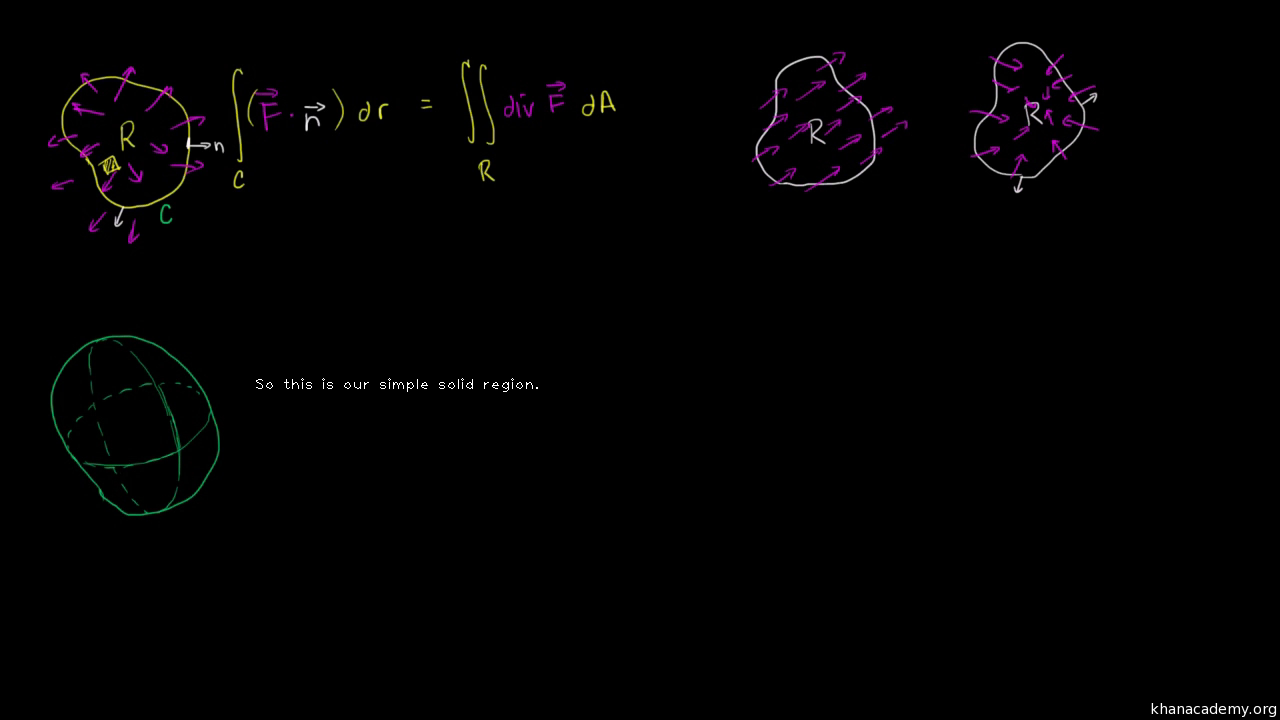 R
n
C
∫ (F⃗ · n⃗) dr = ∬ div F⃗ dA
C
R
R
R
So this is our simple solid region.
khanacademy.org